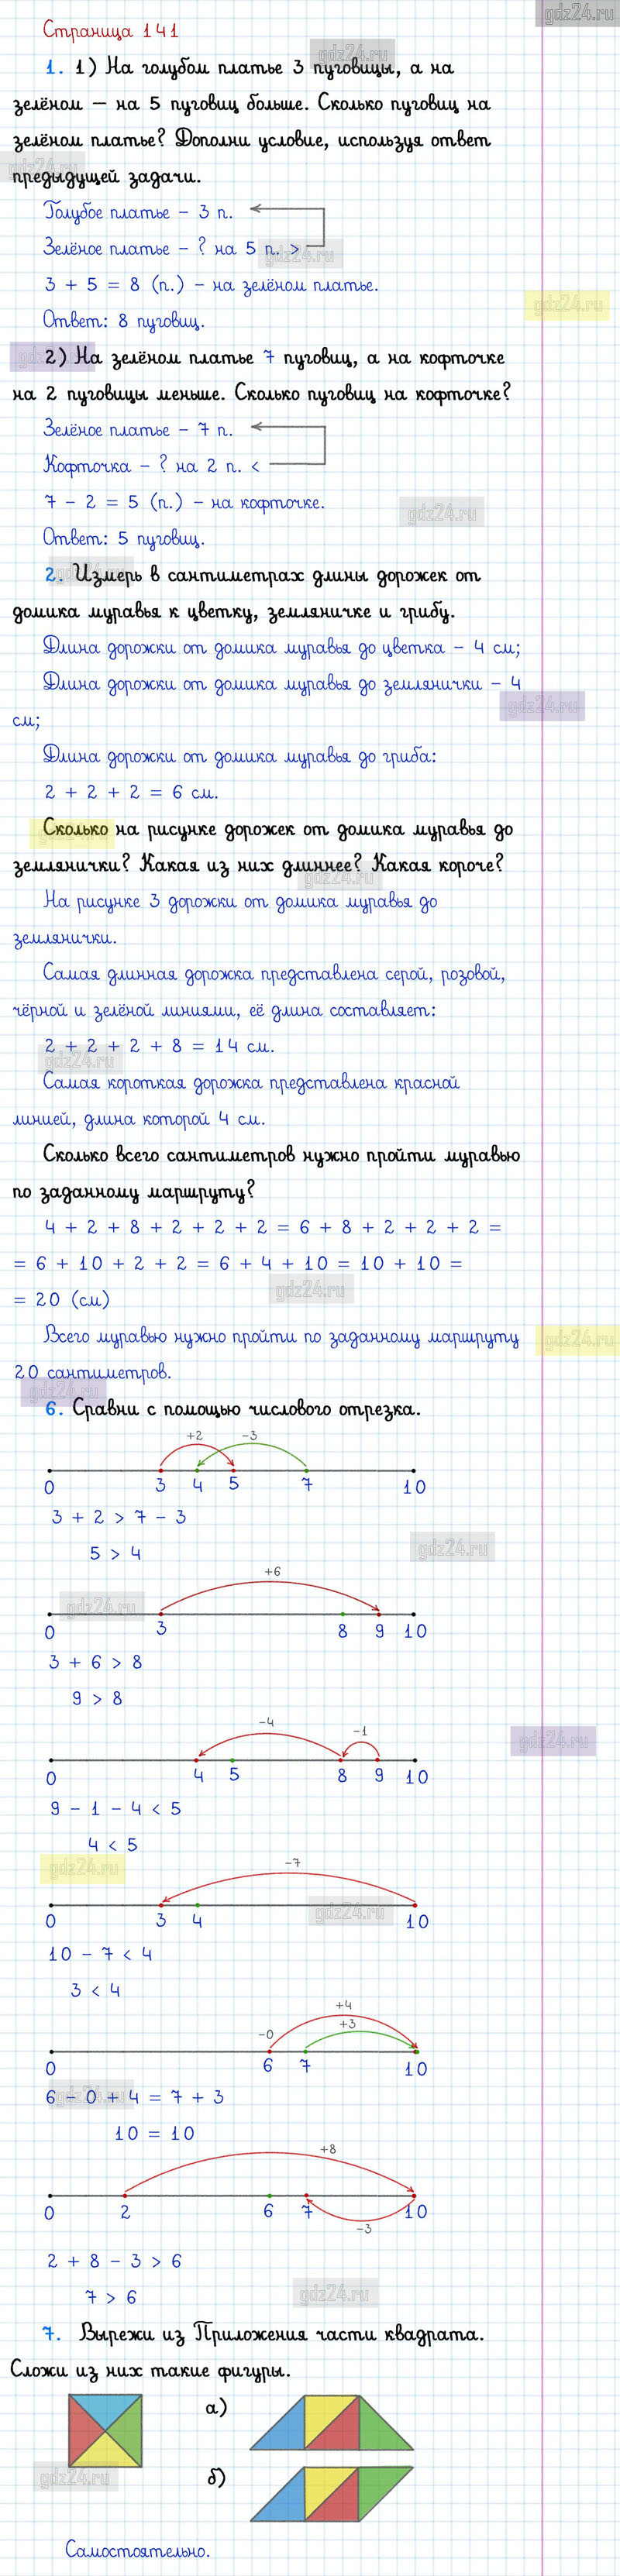 gdz24.ru
Страница 141
gdz24.ru
1. 1) На голубом платье 3 пуговицы, а на
зелёном — на 5 пуговиц больше. Сколько пуговиц на
зелёном платье? Дополни условие, используя ответ
gdz24.ru
предыдущей задачи.
Голубое платье - 3 п.
Зелёное платье - ? на 5 п. >
gdz24.ru
3 + 5 = 8 (п.) - на зелёном платье.
gdz24.ru
Ответ: 8 пуговиц.
gdz24.ru
2) На зелёном платье 7 пуговиц, а на кофточке
на 2 пуговицы меньше. Сколько пуговиц на кофточке?
Зелёное платье - 7 п.
Кофточка - ? на 2 п. <
7 - 2 = 5 (п.) - на кофточке.
gdz24.ru
Ответ: 5 пуговиц.
gdz24.ru
2. Измерь в сантиметрах длины дорожек от
домика муравья к цветку, земляничке и грибу.
Длина дорожки от домика муравья до цветка - 4 см;
Длина дорожки от домика муравья до землянички - 4
gdz24.ru
см;
Длина дорожки от домика муравья до гриба:
2 + 2 + 2 = 6 см.
gdz24.ru
Сколько на рисунке дорожек от домика муравья до
землянички? Какая из них длиннее? Какая короче?
gdz24.ru
На рисунке 3 дорожки от домика муравья до
землянички.
Самая длинная дорожка представлена серой, розовой,
чёрной и зелёной линиями, её длина составляет:
2 + 2 + 2 + 8 = 14 см.
gdz24.ru
Самая короткая дорожка представлена красной
линией, длина которой 4 см.
Сколько всего сантиметров нужно пройти муравью
по заданному маршруту?
4 + 2 + 8 + 2 + 2 + 2 = 6 + 8 + 2 + 2 + 2 =
= 6 + 10 + 2 + 2 = 6 + 4 + 10 = 10 + 10 =
gdz24.ru
= 20 (см)
Всего муравью нужно пройти по заданному маршруту
gdz24.ru
20 сантиметров.
gdz24.ru
6. Сравни с помощью числового отрезка.
+2 -3
0 3 4 5 7 10
3 + 2 > 7 - 3
5 > 4
gdz24.ru
+6
gdz24.ru
0 3 8 9 10
3 + 6 > 8
9 > 8
-4 -1
gdz24.ru
0 4 5 8 9 10
9 - 1 - 4 < 5
4 < 5
gdz24.ru
-7
gdz24.ru
0 3 4 10
10 - 7 < 4
3 < 4
+4
+3
-0
0 6 7 10
6 - 0 + 4 = 7 + 3
gdz24.ru
10 = 10
+8
0 2 6 7 10
-3
2 + 8 - 3 > 6
7 > 6
gdz24.ru
7. Вырежи из Приложения части квадрата.
Сложи из них такие фигуры.
а)
gdz24.ru
б)
Самостоятельно.